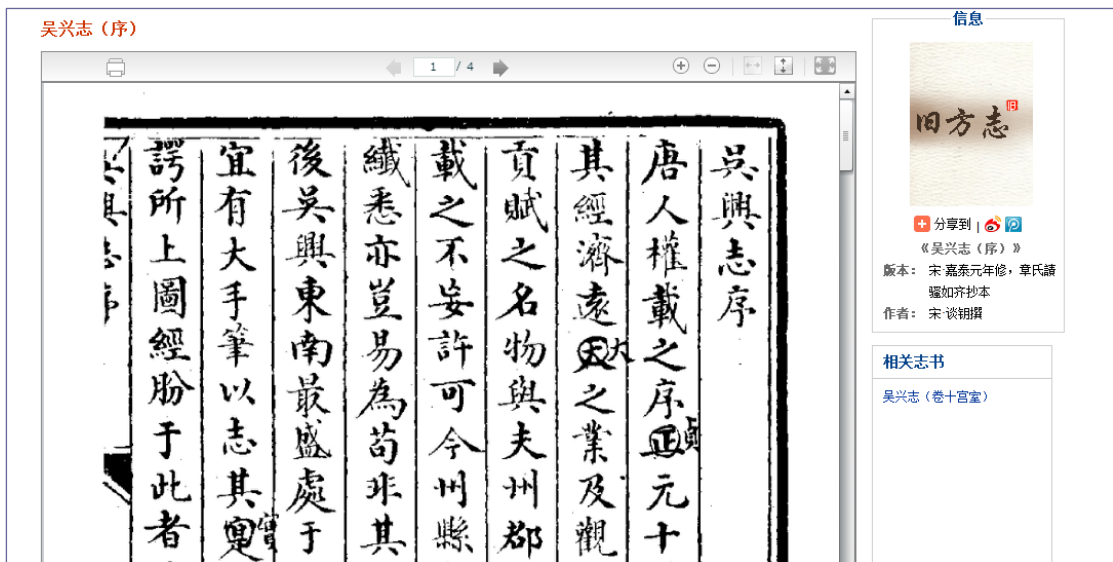 吴兴志（序）
1 / 4
吳興志序
唐人權載之序正貞元十
其經濟遠天大之業及觀
貢賦之名物與夫州郡
載之不妄許可今州縣
纖悉亦豈易為苟非其
後吳興東南最盛處于
宜有大手筆以志其寔實
諤所上圖經于此者
信息
旧方志
旧
分享到 |
《吴兴志（序）》
版本： 宋·嘉泰元年修，章氏讀
騷如齐抄本
作者： 宋·谈钥撰
相关志书
吴兴志（卷十宫室）